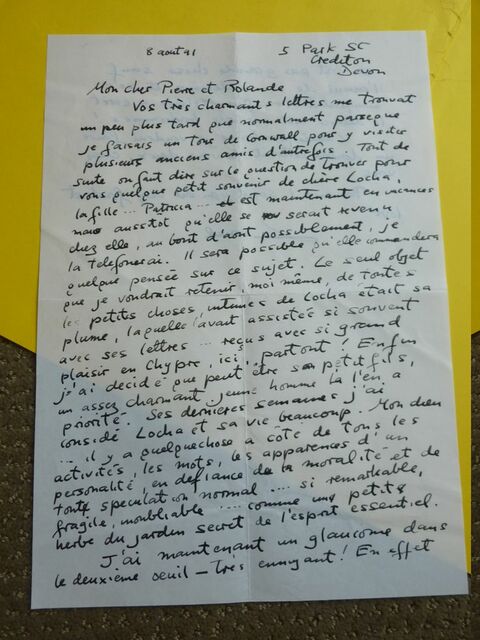 8 aout 91
5 Park St
Crediton
Devon
Mon cher Pierre et Rolande
Vos très charmants lettres me trouvat
un peu plus tard que normalment parseque
je faisais un Tous de Cornwall pour y visiter
plusieurs anciens amis d'autrefois. Tout de
suite on fait dire sur le question de Trouver pour
vous quelque petit souvenir de chère Locha,
la fille ... Patricia ... est maintenant en vacances
mais aussitot qu'elle se serait revenu
chez elle, au bout d'aout possiblement, je
la telefonerai. Il sera possible qu'elle commandera
quelque pensée sur ce sujet. Le seul objet
que je voudrait retenir, moi même, de toutes
les petits choses intimes de Locha était sa
plume, laquelle l'avait assistée si souvent
avec ses lettres ... reçus avec si grand
plaisir en Chypre, ici, partout! Enfin
j'ai décidé que peut être son petit fils,
un assez charmant jeune homme la l'en a
priorité. Ses dernieres semaines j'ai
considé Locha et sa vie beaucoup. Mon dieu
... il y a quelquechose a côté de tous les
activités, les mots, les apparences d'un
personalité, en defiance de la moralité et de
toute speculation normal .... si remarkable,
fragile, inoubliable .... comme une petite
herbe du jardin secret de l'esprit essentiel.
J'ai maintenant un glaucome dans
le deuxième oeuil - très ennuyant! En effet